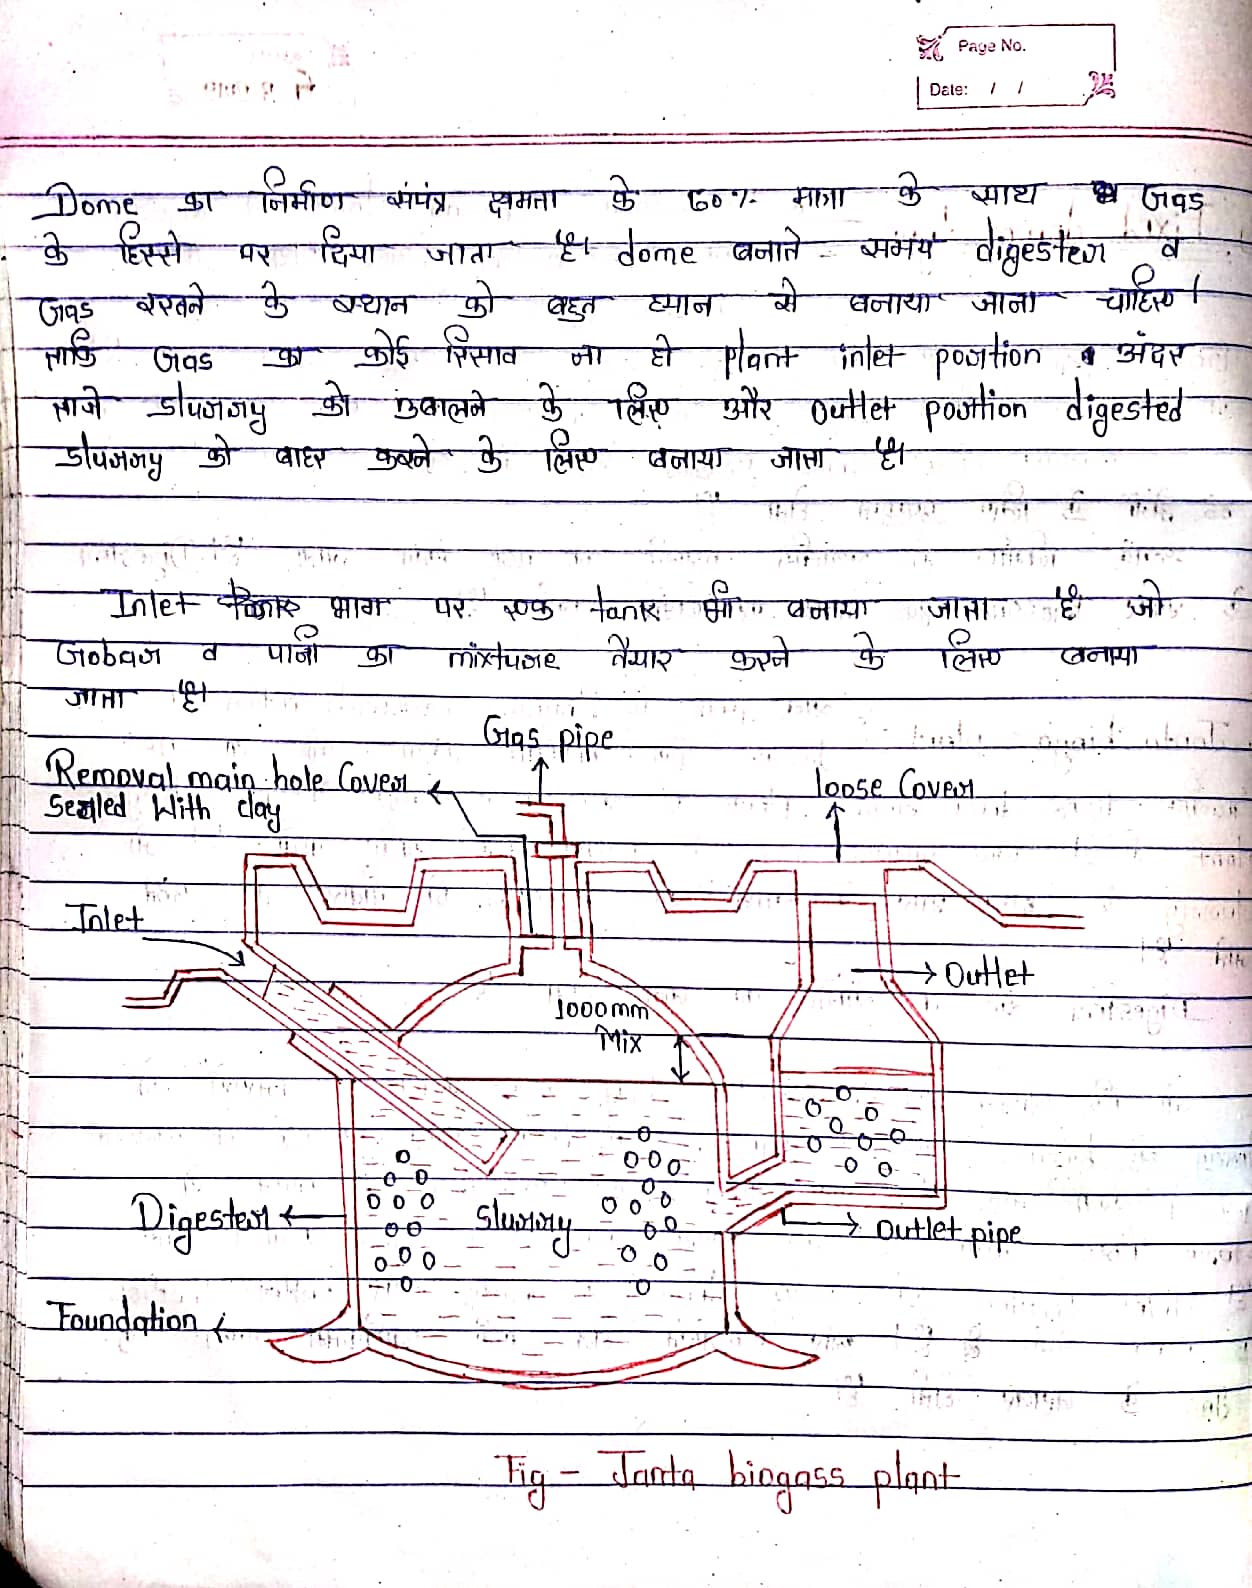 Page No.
Date: / /
Dome का निर्माण संपंत्र क्षमता के 60% मात्रा के साथ Gas
के हिस्से पर दिया जाता है। dome बनाते समय digester व
Gas रखने के स्थान को बहुत ध्यान से बनाया जाना चाहिए।
ताकि Gas का कोई रिसाव ना हो plant inlet position अंदर
ताजे slurry को उबालने के लिए और outlet position digested
slurry को बाहर करने के लिए बनाया जाता है।
Inlet भाग पर एक tank भी बनाया जाता है जो
Gobar व पानी का mixture तैयार करने के लिए बनाया
जाता है।
Gas pipe
Removal main hole Cover
Sealed With clay
loose Cover
Inlet
Outlet
1000mm
Mix
Digester
Slurry
Outlet pipe
Foundation
Fig - Janta biogass plant